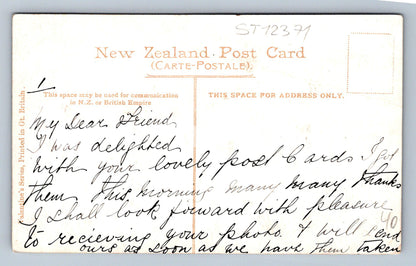 ST-12371
New Zealand Post Card
(CARTE-POSTALE).
1
This space may be used for communication
in N.Z. or British Empire
THIS SPACE FOR ADDRESS ONLY.
Valentine's Series, Printed in Gt. Britain.
My Dear Friend
I was delighted
with your lovely post Cards I got
them This Morning many many Thanks
I shall look forward with pleasure
40
to recieving your photo. I will send
ours as soon as we have them taken